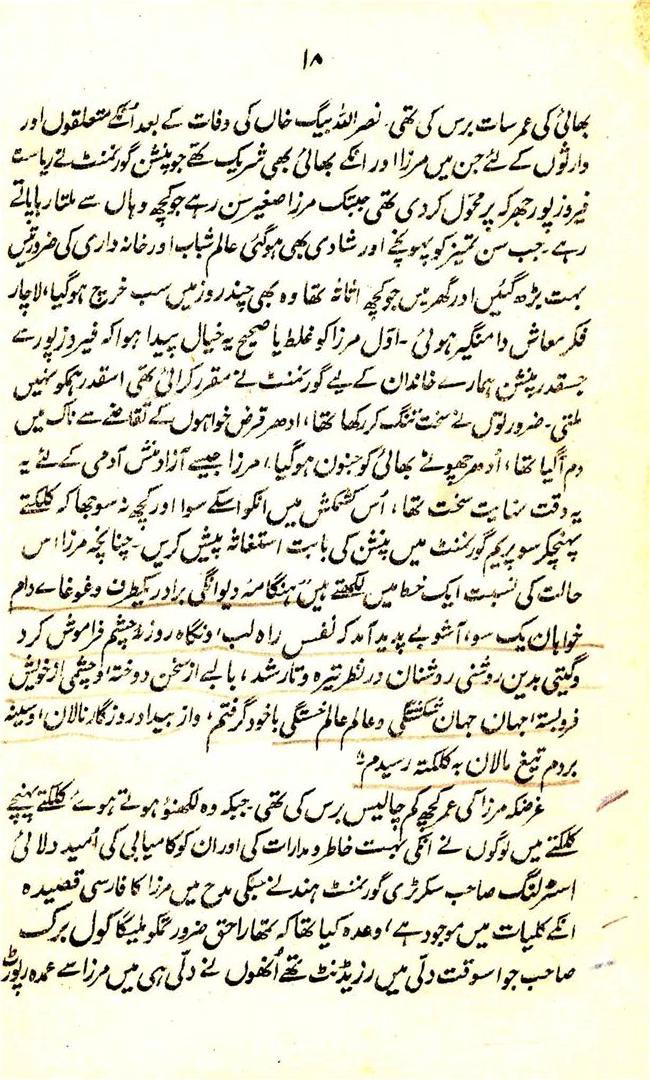 ۱۸
بھائی کی عمر سات برس کی تھی۔ نصراللہ بیگ خاں کی وفات کے بعد اُنکے متعلقوں اور
وارثوں کے لئے جن میں مرزا اور انکے بھائی بھی شریک تھے جو پنشن گورنمنٹ نے ریاست
فیروزپور جھرکہ پر محوّل کردی تھی جبتک مرزا صغیر سن رہے جو کچھ وہاں سے ملتا رہا پاتے
رہے۔ جب سن تمیز کو پہونچے اور شادی بھی ہوگئی عالم شباب اور خانہ داری کی ضرورتیں
بہت بڑھ گئیں اور گھر میں جو کچھ اثاثہ تھا وہ بھی چند روز میں سب خرچ ہوگیا، لاچار
فکر معاش دامنگیر ہوئی۔ اوّل مرزا کو غلط یا صحیح یہ خیال پیدا ہوا کہ فیروزپور سے
جسقدر پنشن ہمارے خاندان کے لیے گورنمنٹ نے مقرر کرائی تھی اسقدر ہمکو نہیں
ملتی۔ ضرورتوں نے سخت تنگ کر رکھا تھا، ادھر قرض خواہوں کے تقاضے سے ناک میں
دم آگیا تھا، اُدھر چھوٹے بھائی کو جنون ہوگیا، مرزا جیسے آزاد منش آدمی کے لئے یہ
یہ وقت نہایت سخت تھا، اُس کشمکش میں انکو اسکے سوا اور کچھ نہ سوجھا کہ کلکتے
پہنچکر سوپریم گورنمنٹ میں پنشن کی بابت استغاثہ پیش کریں۔ چنانچہ مرزا اس
حالت کی نسبت ایک خط میں لکھتے ہیں "ہنگامۂ دیوانگی برادر یکطرف و غوغاے وام
خواہان یک سو، آشوبے پدید آمد کہ نفس راہ لب، و نگاہ روزنۂ چشم فراموش کرد
و گیتی بدین روشنی روشنان در نظر تیره و تار شد، با لبے از سخن دوختہ، و چشمی از خویش
فروبستہ، جہان جہان شکستگی و عالم عالم خستگی با خود گرفتم، و از بیداد روزگار نالان، و سینہ
بر دم تیغ مالان بہ کلکتہ رسیدم"
غرضکہ مرزا کی عمر کچھ کم چالیس برس کی تھی۔ جبکہ وہ لکھنؤ ہوتے ہوے کلکتے پہنچے
کلکتے میں لوگوں نے انکی بہت خاطر و مدارات کی اور ان کو کامیابی کی اُمید دلائی
اسٹرلنگ صاحب سکرٹری گورنمنٹ ہند نے جنکی مدح میں مرزا کا فارسی قصیدہ
انکے کلیات میں موجود ہے، وعدہ کیا تھا کہ تمھارا حق ضرور تمکو ملیگا کول برک
صاحب جو اسوقت دلّی میں رزیڈنٹ تھے اُنھوں نے دلّی ہی میں مرزا سے عمدہ رپورٹ